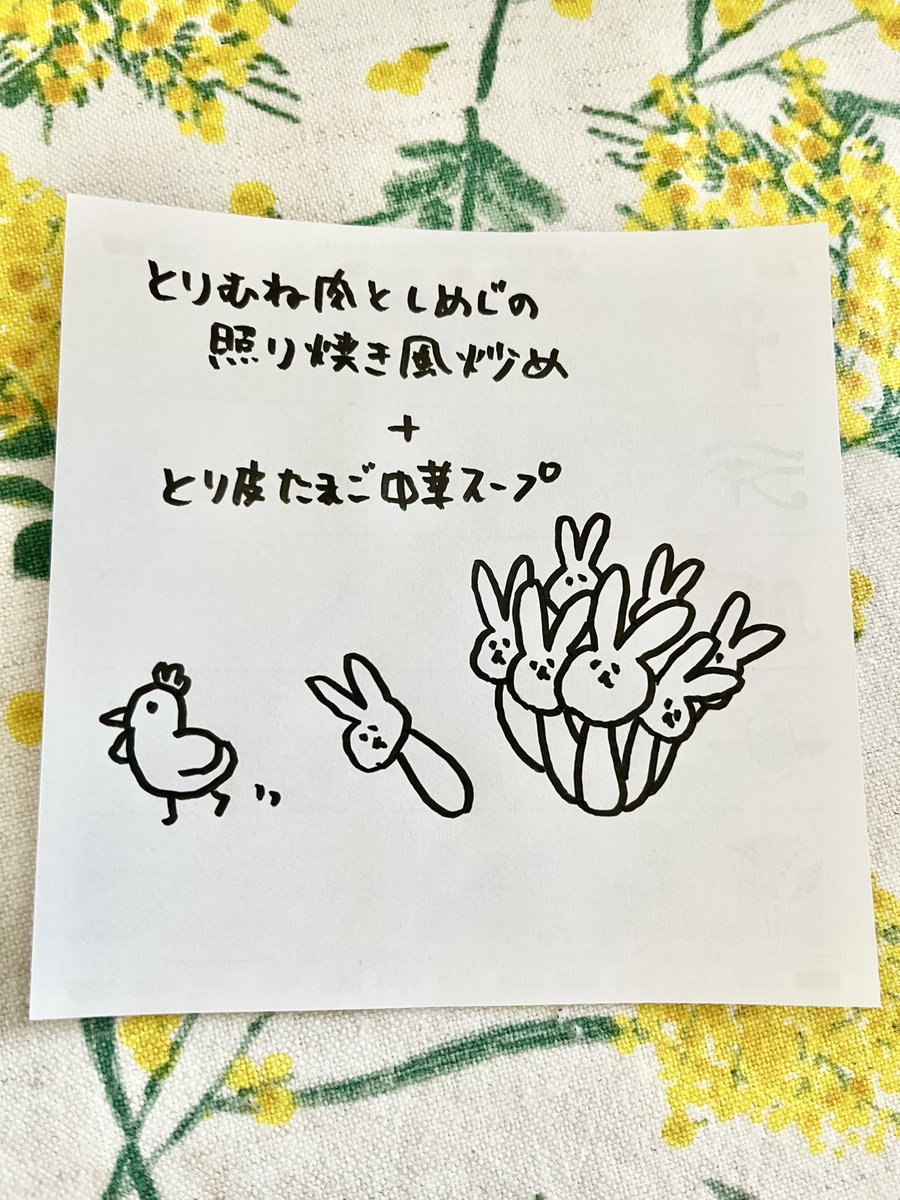 とりむね肉としめじの
照り焼き風炒め
+
とり皮たまご中華スープ